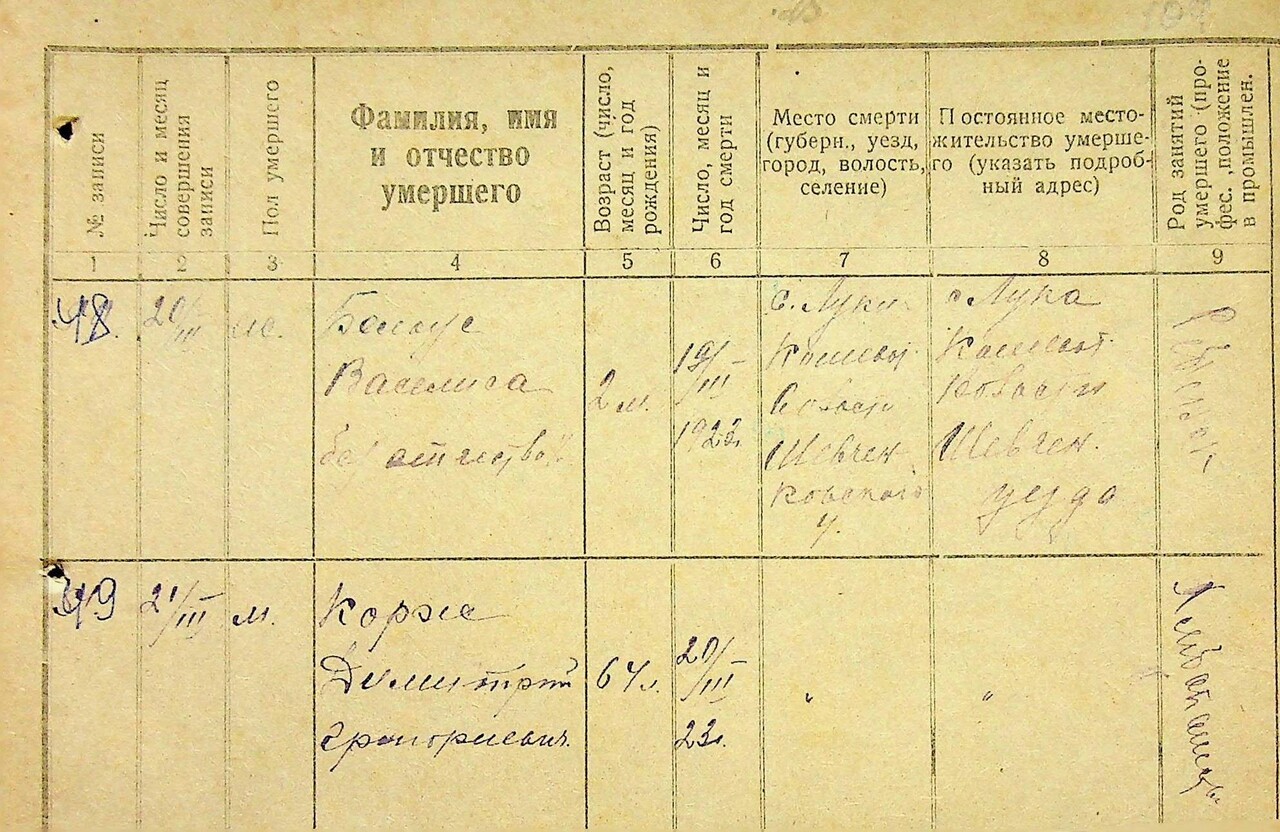 № записи
Число и месяц
совершения
записи
Пол умершего
Фамилия, имя
и отчество
умершего
Возраст (число,
месяц и год
рождения)
Число, месяц и
год смерти
Место смерти
(губерн., уезд,
город, волость,
селение)
Постоянное место-
жительство умерше-
го (указать подроб-
ный адрес)
Род занятий
умершего (про-
фес. ,положение
в промышлен.
1
2
3
4
5
6
7
8
9
48.
20/III
Василиса
без отчества
2 м.
19/III
1923г.
с. Луки
Волости
Шевчен
ковского
у.
с Лука
Волости
Шевчен.
уезда
49
21/III
м.
Корж
Димитрий
Григориевич.
64 л.
20/III
23г.
"
"
Хлебопашец